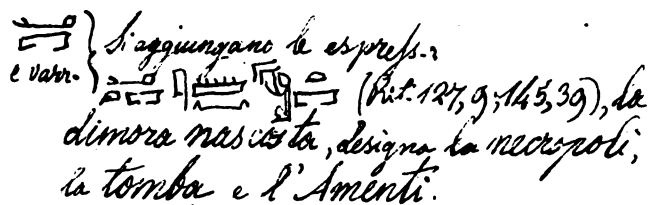 Si aggiungano le espress.i
e varr. (Rit. 127, 9; 145, 39), la
dimora nascosta, designa la necropoli,
la tomba e l'Amenti.